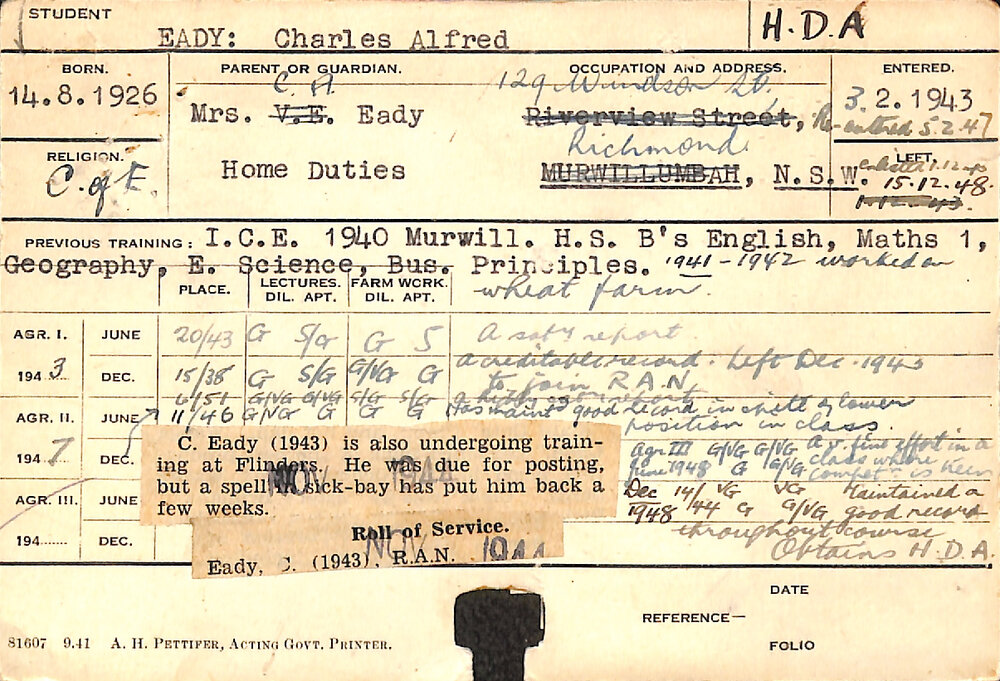 STUDENT
EADY: Charles Alfred
H.D.A
BORN.
PARENT OR GUARDIAN.
OCCUPATION AND ADDRESS.
ENTERED.
14.8.1926
C. A.
Mrs. V.E. Eady
129 Windsor St.
Riverview Street,
3.2.1943
Re-entered 5.2.47
RELIGION.
C. of E.
Home Duties
Richmond
MURWILLUMBAH, N.S.W.
LEFT.
15.12.48.
1.12.43.
PREVIOUS TRAINING: I.C.E. 1940 Murwill. H.S. B's English, Maths 1,
Geography, E. Science, Bus. Principles. 1941-1942 worked on
wheat farm.
PLACE.
LECTURES. DIL. APT.
FARM WORK. DIL. APT.
AGR. I. JUNE 20/43 G S/G G S A satʸ report
194 3 DEC. 15/38 G S/G G/VG G a creditable record. Left Dec. 1943
to join R.A.N.
6/51 G/VG G/VG S/G S/G
AGR. II. JUNE 11/46 G/VG G G G Has maintᵈ good record in spite of lower
position in class.
194 7 DEC.
Agr III G/VG G/VG G/VG A v. fine effort in a
June 1948 G G/VG class where
compet is keen
C. Eady (1943) is also undergoing train-
ing at Flinders. He was due for posting,
but a spell in sick-bay has put him back a
few weeks.
NOV 1944
AGR. III. JUNE
Dec 14/ VG VG Maintained a
1948 44 G G/VG good record
throughout course
Obtains H.D.A.
194 DEC.
Roll of Service.
Eady, C. (1943), R.A.N.
NOV 1944
DATE
REFERENCE—
FOLIO
81607 9.41 A. H. PETTIFER, ACTING GOVT. PRINTER.